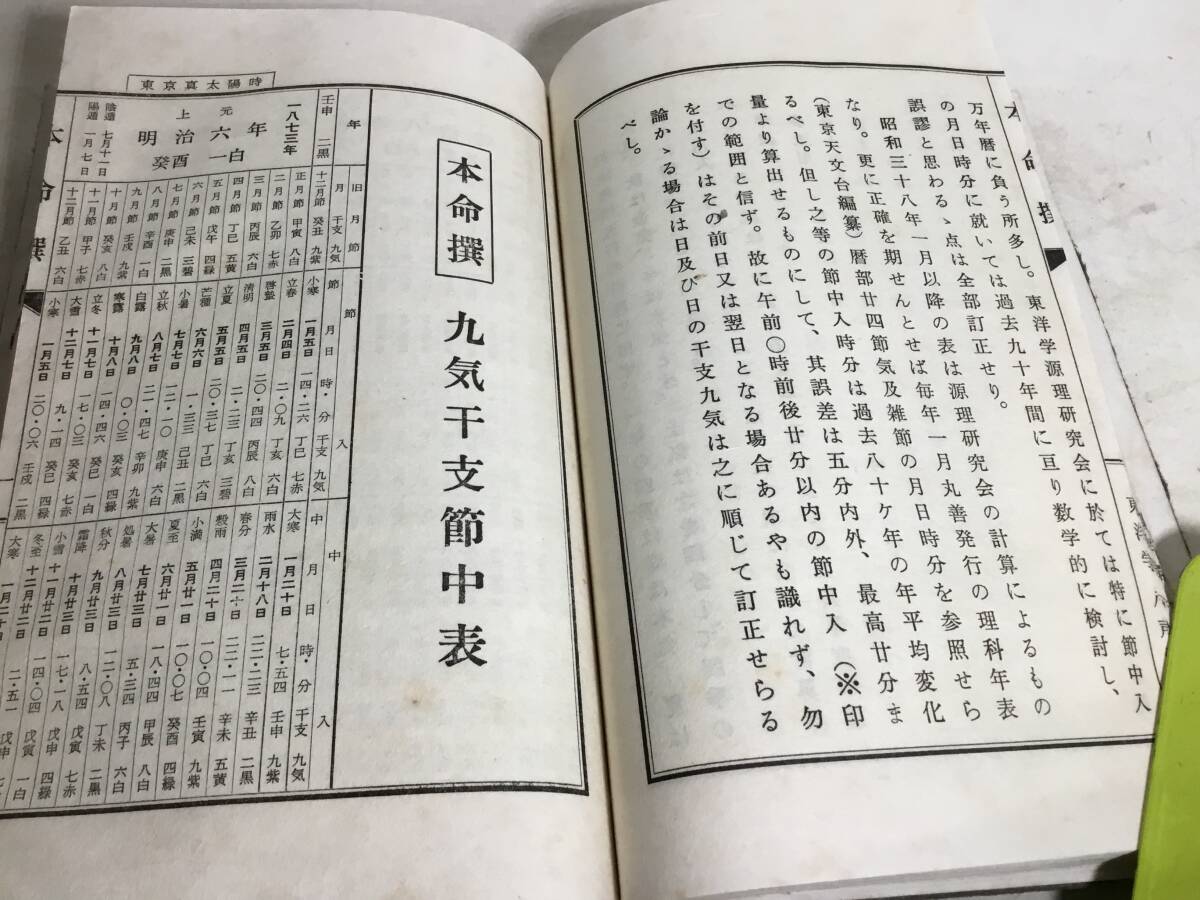 万年暦に負う所多し。東洋学源理研究会に於ては特に節中入
の月日時分に就いては過去九十年間に亘り数学的に検討し、
誤謬と思わるゝ点は全部訂正せり。
昭和三十八年一月以降の表は源理研究会の計算によるもの
なり。更に正確を期せんとせば毎年一月丸善発行の理科年表
(東京天文台編纂)暦部廿四節気及雑節の月日時分を参照せら
るべし。但し之等の節中入時分は過去八十ケ年の年平均変化
量より算出せるものにして、其誤差は五分内外、最高廿分ま
での範囲と信ず。故に午前〇時前後廿分以内の節中入(※印
を付す)はその前日又は翌日となる場合あるやも識れず、勿
論かゝる場合は日及び日の干支九気は之に順じて訂正せらる
べし。
本命撰
本命撰 九気干支節中表
東京真太陽時
年 旧月節 節入 中入
月 干支 九気 節 月日 時・分 干支 九気 中 月日 時・分 干支 九気
壬申 二黒 十二月節 癸丑 九紫 小寒 一月五日 一四・二六 丁巳 七赤 大寒 一月二十日 七・五四 壬申 九紫
一八七三年 正月節 甲寅 八白 立春 二月四日 二・〇九 丁亥 六白 雨水 二月十八日 二二・二三 辛丑 二黒
二月節 乙卯 七赤 啓蟄 三月五日 二〇・四四 丙辰 八白 春分 三月二十日 二二・一一 辛未 五黄
三月節 丙辰 六白 清明 四月五日 二・二三 丁亥 三碧 穀雨 四月二十日 一〇・〇四 壬寅 九紫
四月節 丁巳 五黄 立夏 五月五日 二〇・三七 丁巳 六白 小満 五月廿一日 一〇・〇七 癸酉 四緑
五月節 戊午 四緑 芒種 六月六日 一・三三 己丑 二黒 夏至 六月廿一日 一八・二四 甲辰 八白
六月節 己未 三碧 小暑 七月七日 一二・一〇 庚申 六白 大暑 七月廿三日 五・三四 丙子 六白
七月節 庚申 二黒 立秋 八月七日 二一・四七 辛卯 九紫 処暑 八月廿三日 一二・〇八 丁未 二黒
八月節 辛酉 一白 白露 九月八日 〇・〇三 癸亥 四緑 秋分 九月廿三日 八・五四 戊寅 七赤
九月節 壬戌 九紫 寒露 十月八日 一四・四六 癸巳 一白 霜降 十月廿三日 一七・一八 戊申 四緑
十月節 癸亥 八白 立冬 十一月七日 一七・〇三 癸亥 四緑 小雪 十一月廿二日 一四・〇四 戊寅 一白
十一月節 甲子 七赤 大雪 十二月七日 九・一四 癸巳 四緑 冬至 十二月廿二日 二・五一 戊申
十二月節 乙丑 六白 小寒 一月五日 二〇・〇六 壬戌 二黒 大寒
上元 明治六年 癸酉 一白
陰遁 七月十一日
陽遁 一月七日
本命撰